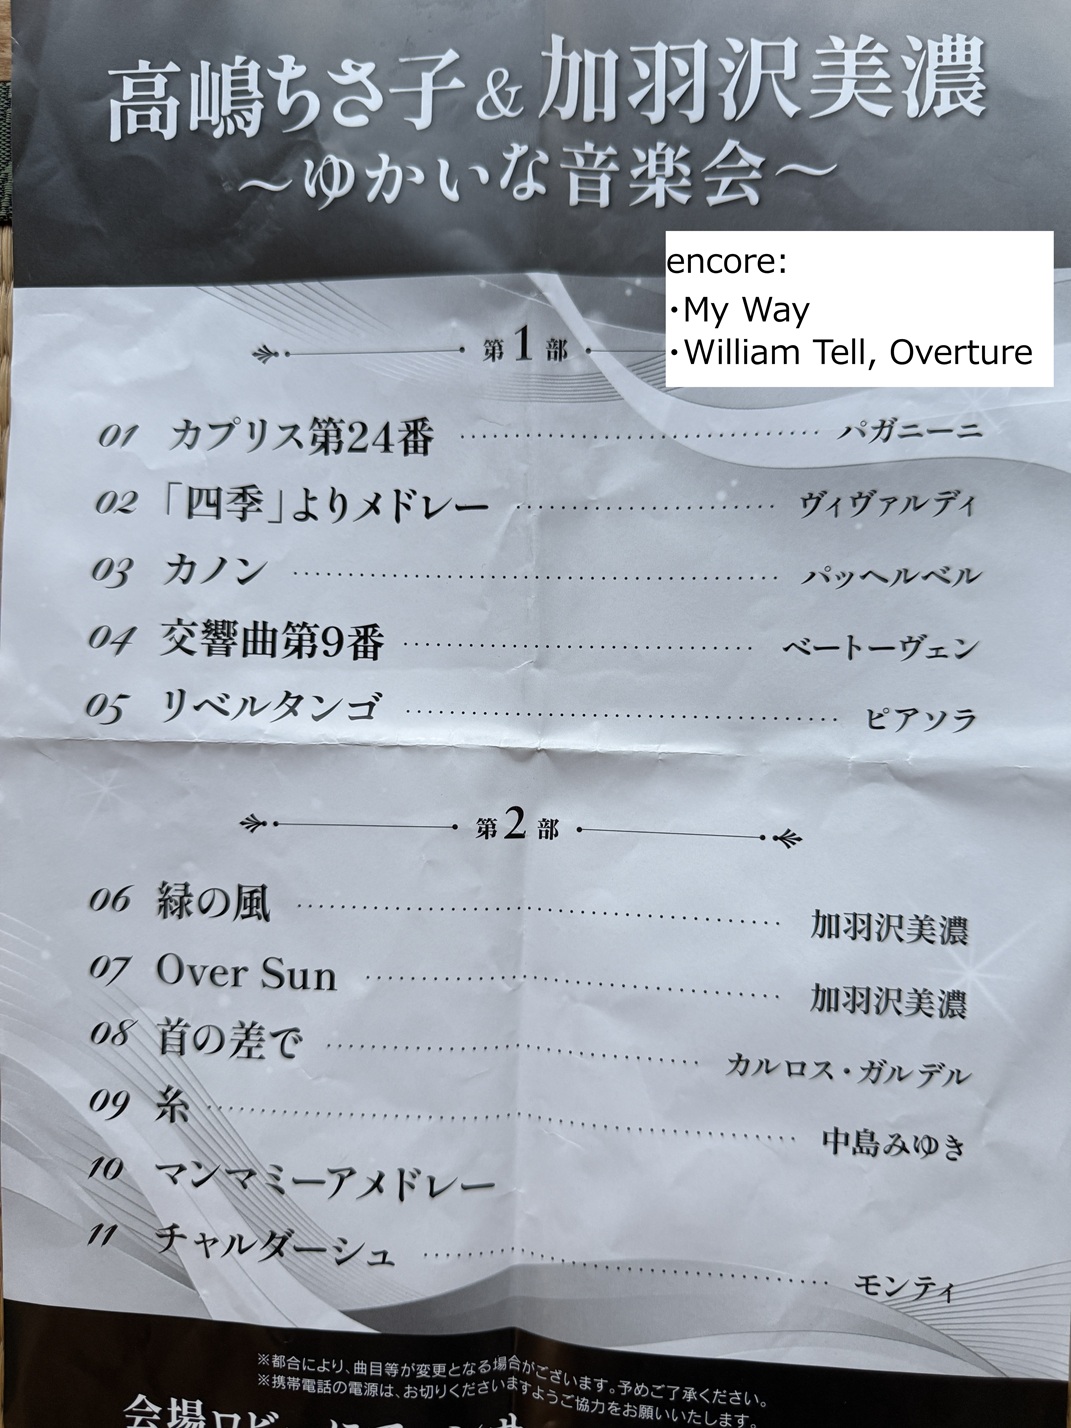 高嶋ちさ子&加羽沢美濃
～ゆかいな音楽会～
encore:
・My Way
・William Tell, Overture
第1部
01 カプリス第24番 パガニーニ
02 「四季」よりメドレー ヴィヴァルディ
03 カノン パッヘルベル
04 交響曲第9番 ベートーヴェン
05 リベルタンゴ ピアソラ
第2部
06 緑の風 加羽沢美濃
07 Over Sun 加羽沢美濃
08 首の差で カルロス・ガルデル
09 糸 中島みゆき
10 マンマミーアメドレー
11 チャルダーシュ モンティ
※都合により、曲目等が変更となる場合がございます。予めご了承ください。
※携帯電話の電源は、お切りくださいますようご協力をお願いいたします。
会場ロビー